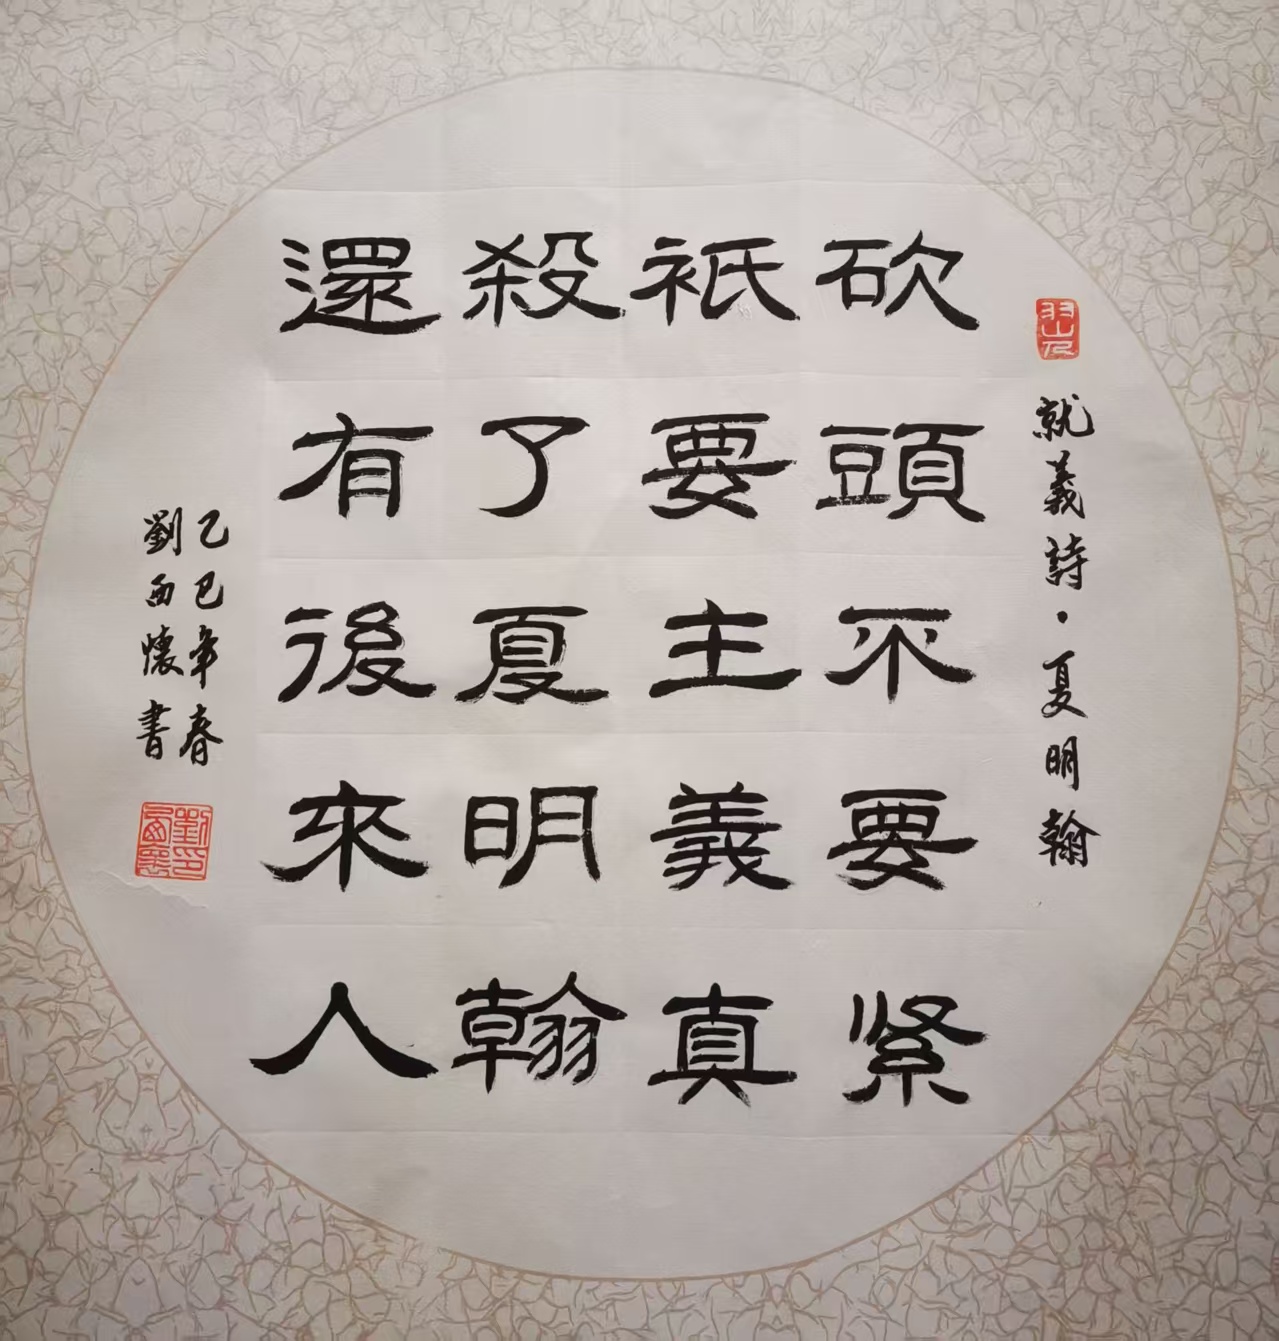 就義詩·夏明翰
砍頭不要緊
衹要主義真
殺了夏明翰
還有後來人
乙巳年春
劉西懷書